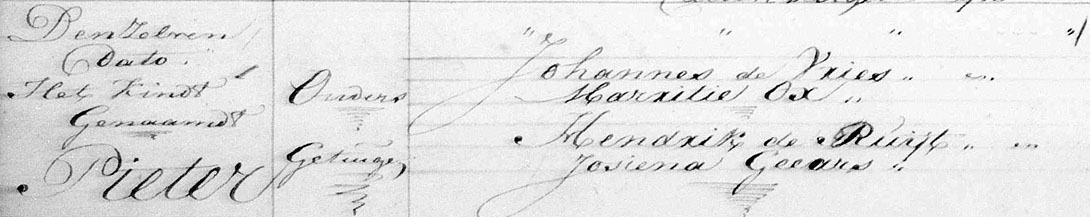 Denzelven
Dato
Het Kindt
Genaamdt
Pieter
Ouders
Getuige
Johannes de Vries
Marritie Ox
Hendrik de Ruijt
Josiena Geears